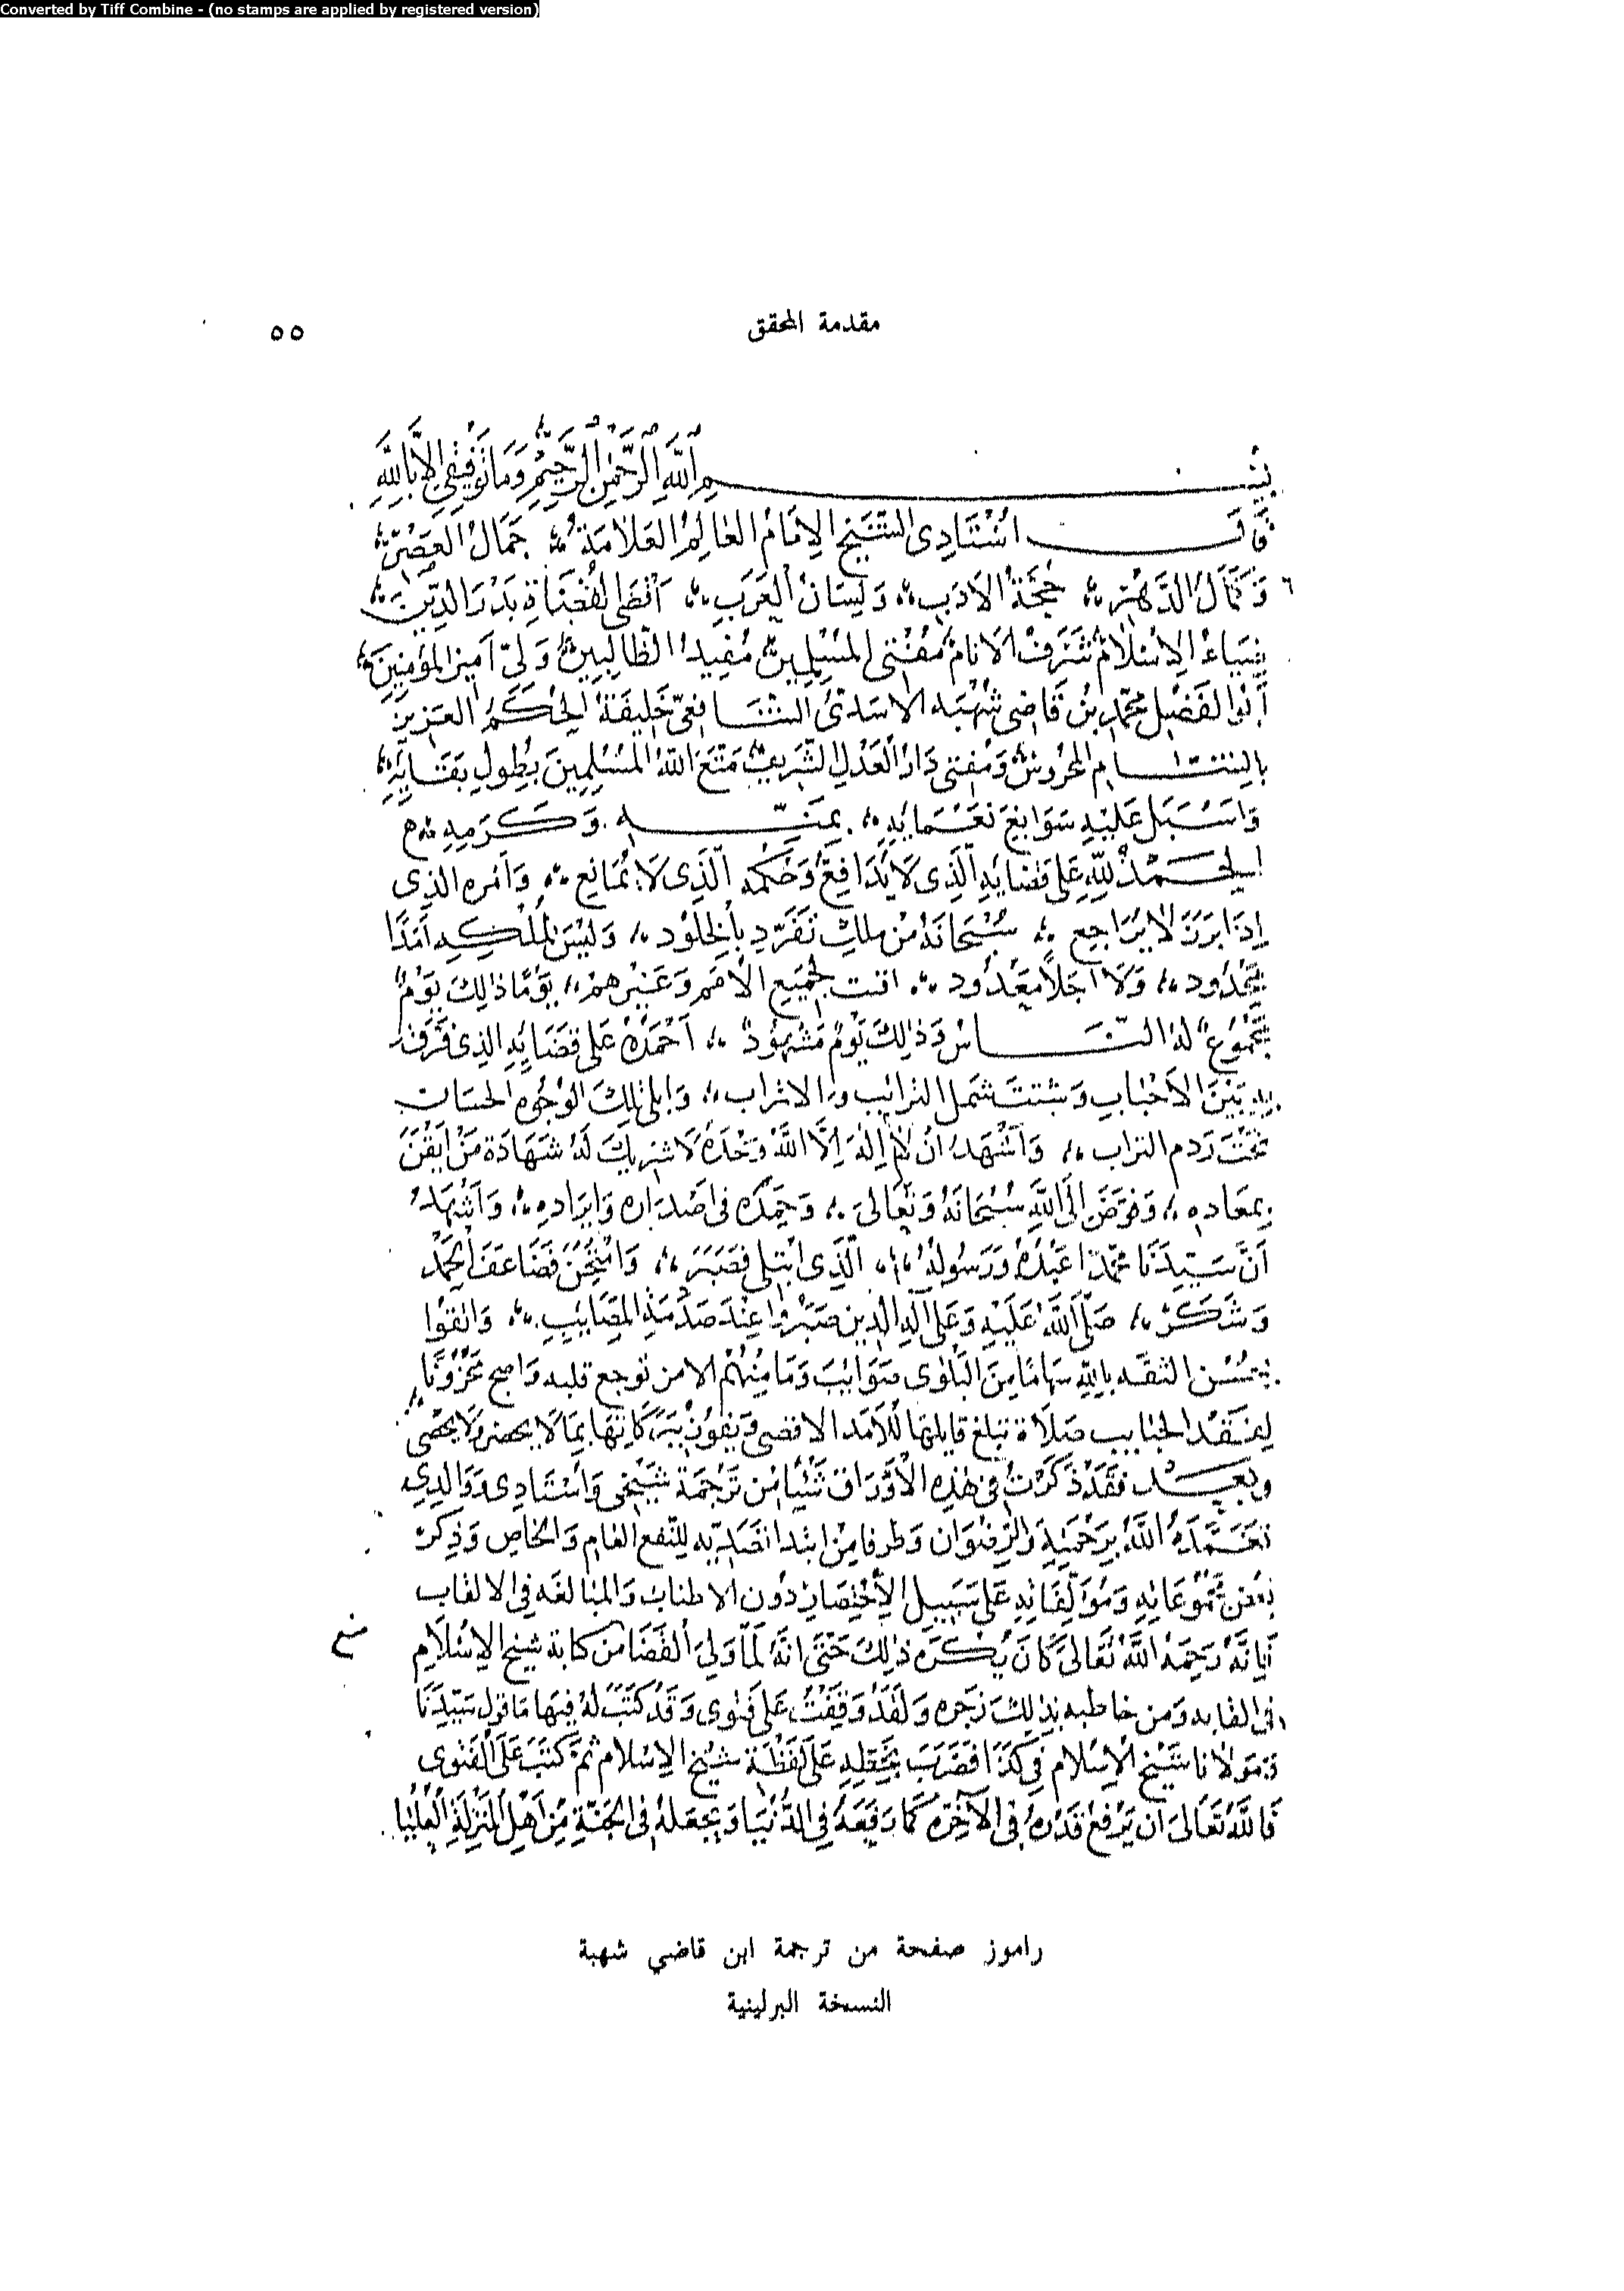 Converted by Tiff Combine - (no stamps are applied by registered version)
مقدمة المحقق
٥٥
بسم الله الرحمن الرحيم وما توفيقي إلا بالله
قال استادى الشيخ الامام العالم العلامة جمال العصر
وكمال الدهر حجة الادب ولسان العرب اقضى القضاة بدر الدين
ضياء الاسلام شرف الانام مفتى المسلمين مفيد الطالبين ولى امير المؤمنين
ابو الفضل محمد بن قاضى شهبه الاسدى الشافعى خليفة الحكم العزيز
بالشام المحروس ومفتى دار العدل الشريف متع الله المسلمين بطول بقائه
واسبل عليه سوابغ نعمائه بمنه وكرمه
الحمد لله على قضائه الذى لا يدافع وحكمه الذى لا يمانع وامره الذى
اذا برز لا يراجع سبحانه من ملك تفرد بالخلود وليس لملكه امدا
محدود ولا اجلا معدود لجميع الامم وغيرهم يوما ذلك يوم
مجموع له الناس وذلك يوم مشهود احمده على قضائه الذى فرق
به بين الاحباب وشتت شمل الترائب والاتراب وابلى تلك الوجوه الحسان
تحت ردم التراب واشهد ان لا اله الا الله وحده لا شريك له شهادة من ايقن
بمعاده وفوض الى الله سبحانه وتعالى وحمده فى اصداره وايراده واشهد
ان سيدنا محمدا عبده ورسوله الذى ابتلى فصبر وامتحن فضاعف الحمد
وشكر صلى الله عليه وعلى آله الذين صبروا عند صدمة المصايب والقوا
بحسن الثقه بالله سهاما من البلوى صوائب وما منهم الا من توجع قلبه واصبح محزونا
لفقد الحبايب صلاة تبلغ قايلها للامد الاقصى ويفوز ببركاتها بما لا يحصر ولا يحصى
وبعد فقد ذكرت فى هذه الاوراق شيئا من ترجمة شيخى واستادى ووالدى
تغمده الله برحمته والرضوان وطرفا من ابتدا تصديه للنفع العام والخاص وذكر
بعض مجموعاته ومؤلفاته على سبيل الاختصار دون الاطناب والمبالغه فى الالقاب
فانه رحمه الله تعالى كان يكره ذلك حتى انه لما ولى القضا من كتابة شيخ الاسلام
فى القابه ومن خاطبه بذلك زجره ولقد وقفت على فتوى وقد كتب له فيها ما قول سيدنا
ومولانا شيخ الاسلام فى كذا فضرب بخطه على لفظة شيخ الاسلام ثم كتب على الفتوى
فالله تعالى ان يرفع قدره فى الآخره كما رفعه فى الدنيا ويجعله فى الجنة من اهل المنزلة العليا
راموز صفحة من ترجمة ابن قاضي شهبة
النسخة البرلينية